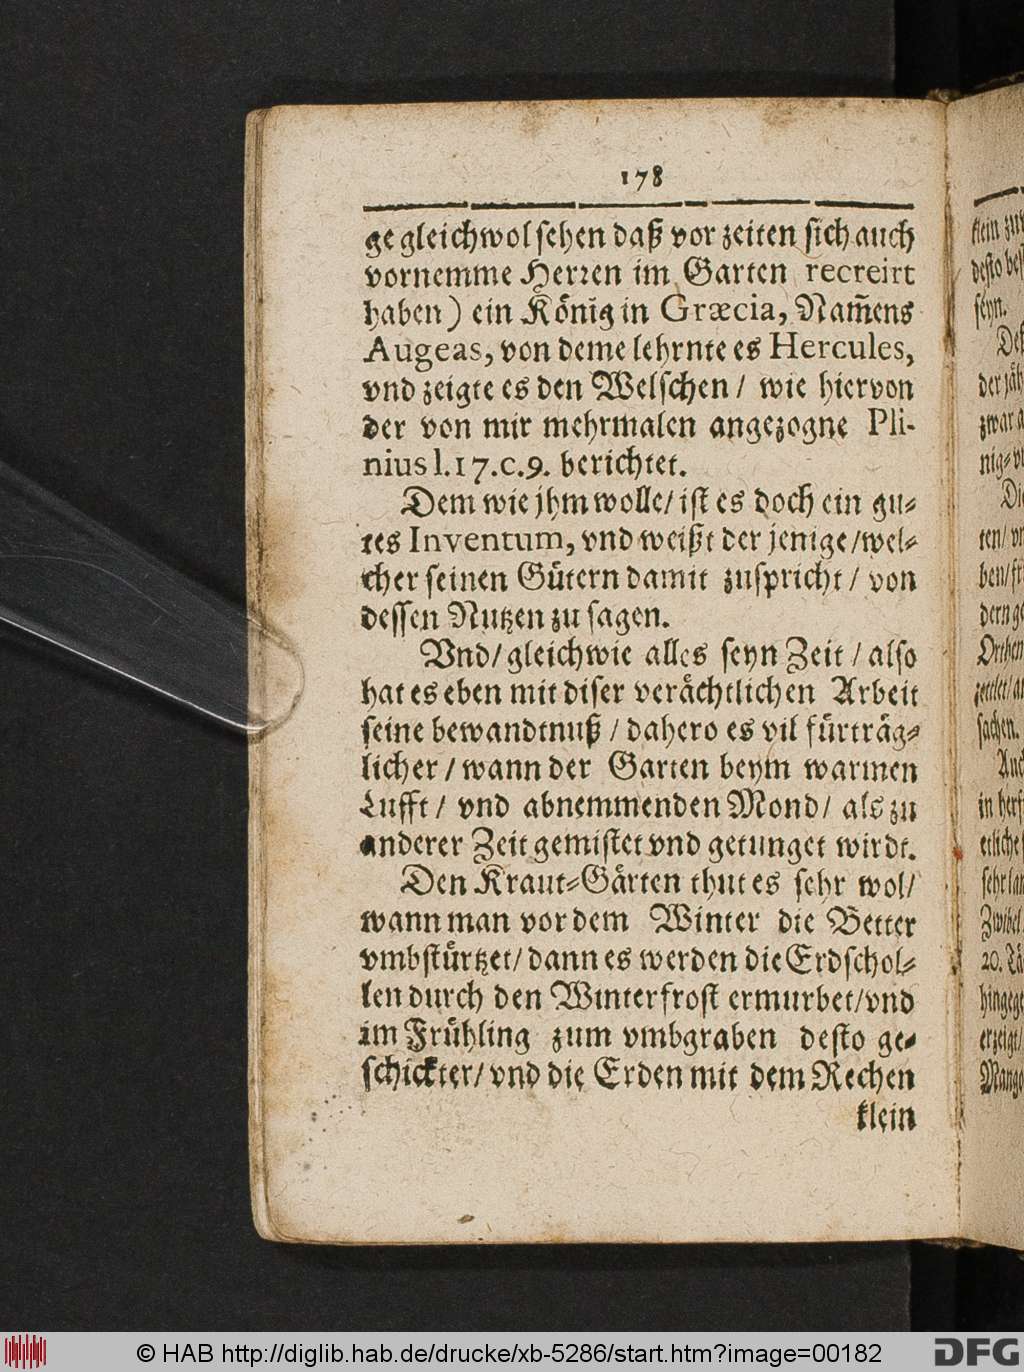 178
ge gleichwol sehen daß vor zeiten sich auch
vornemme Herren im Garten recreirt
haben) ein König in Græcia, Nam̃ens
Augeas, von deme lehrnte es Hercules,
vnd zeigte es den Welschen / wie hiervon
der von mir mehrmalen angezogne Pli-
nius l.17.c.9. berichtet.
Dem wie jhm wolle/ ist es doch ein gu-
tes Inventum, vnd weißt der jenige /wel-
cher seinen Gütern damit zuspricht / von
dessen Nutzen zu sagen.
Vnd/ gleichwie alles seyn Zeit / also
hat es eben mit diser verächtlichen Arbeit
seine bewandtnuß / dahero es vil fürträg-
licher / wann der Garten beym warmen
Lufft / vnd abnemmenden Mond/ als zu
anderer Zeit gemistet vnd getunget wirdt.
Den Kraut-Gärten thut es sehr wol/
wann man vor dem Winter die Better
vmbstürtzet/ dann es werden die Erdschol-
len durch den Winterfrost ermurbet/vnd
im Frühling zum vmbgraben desto ge-
schickter/ vnd die Erden mit dem Rechen
klein
klein zu
desto bes
seyn.
Des
der jäh
zwar a
nig-v
Di
ten/ vn
ben/
dern ge
Orthen
zettlet/
sachen.
Auch
in herf
etliche
sehr lan
Zwibel
20. Tä
hingege
erzeigt/
Mango
© HAB http://diglib.hab.de/drucke/xb-5286/start.htm?image=00182
DFG